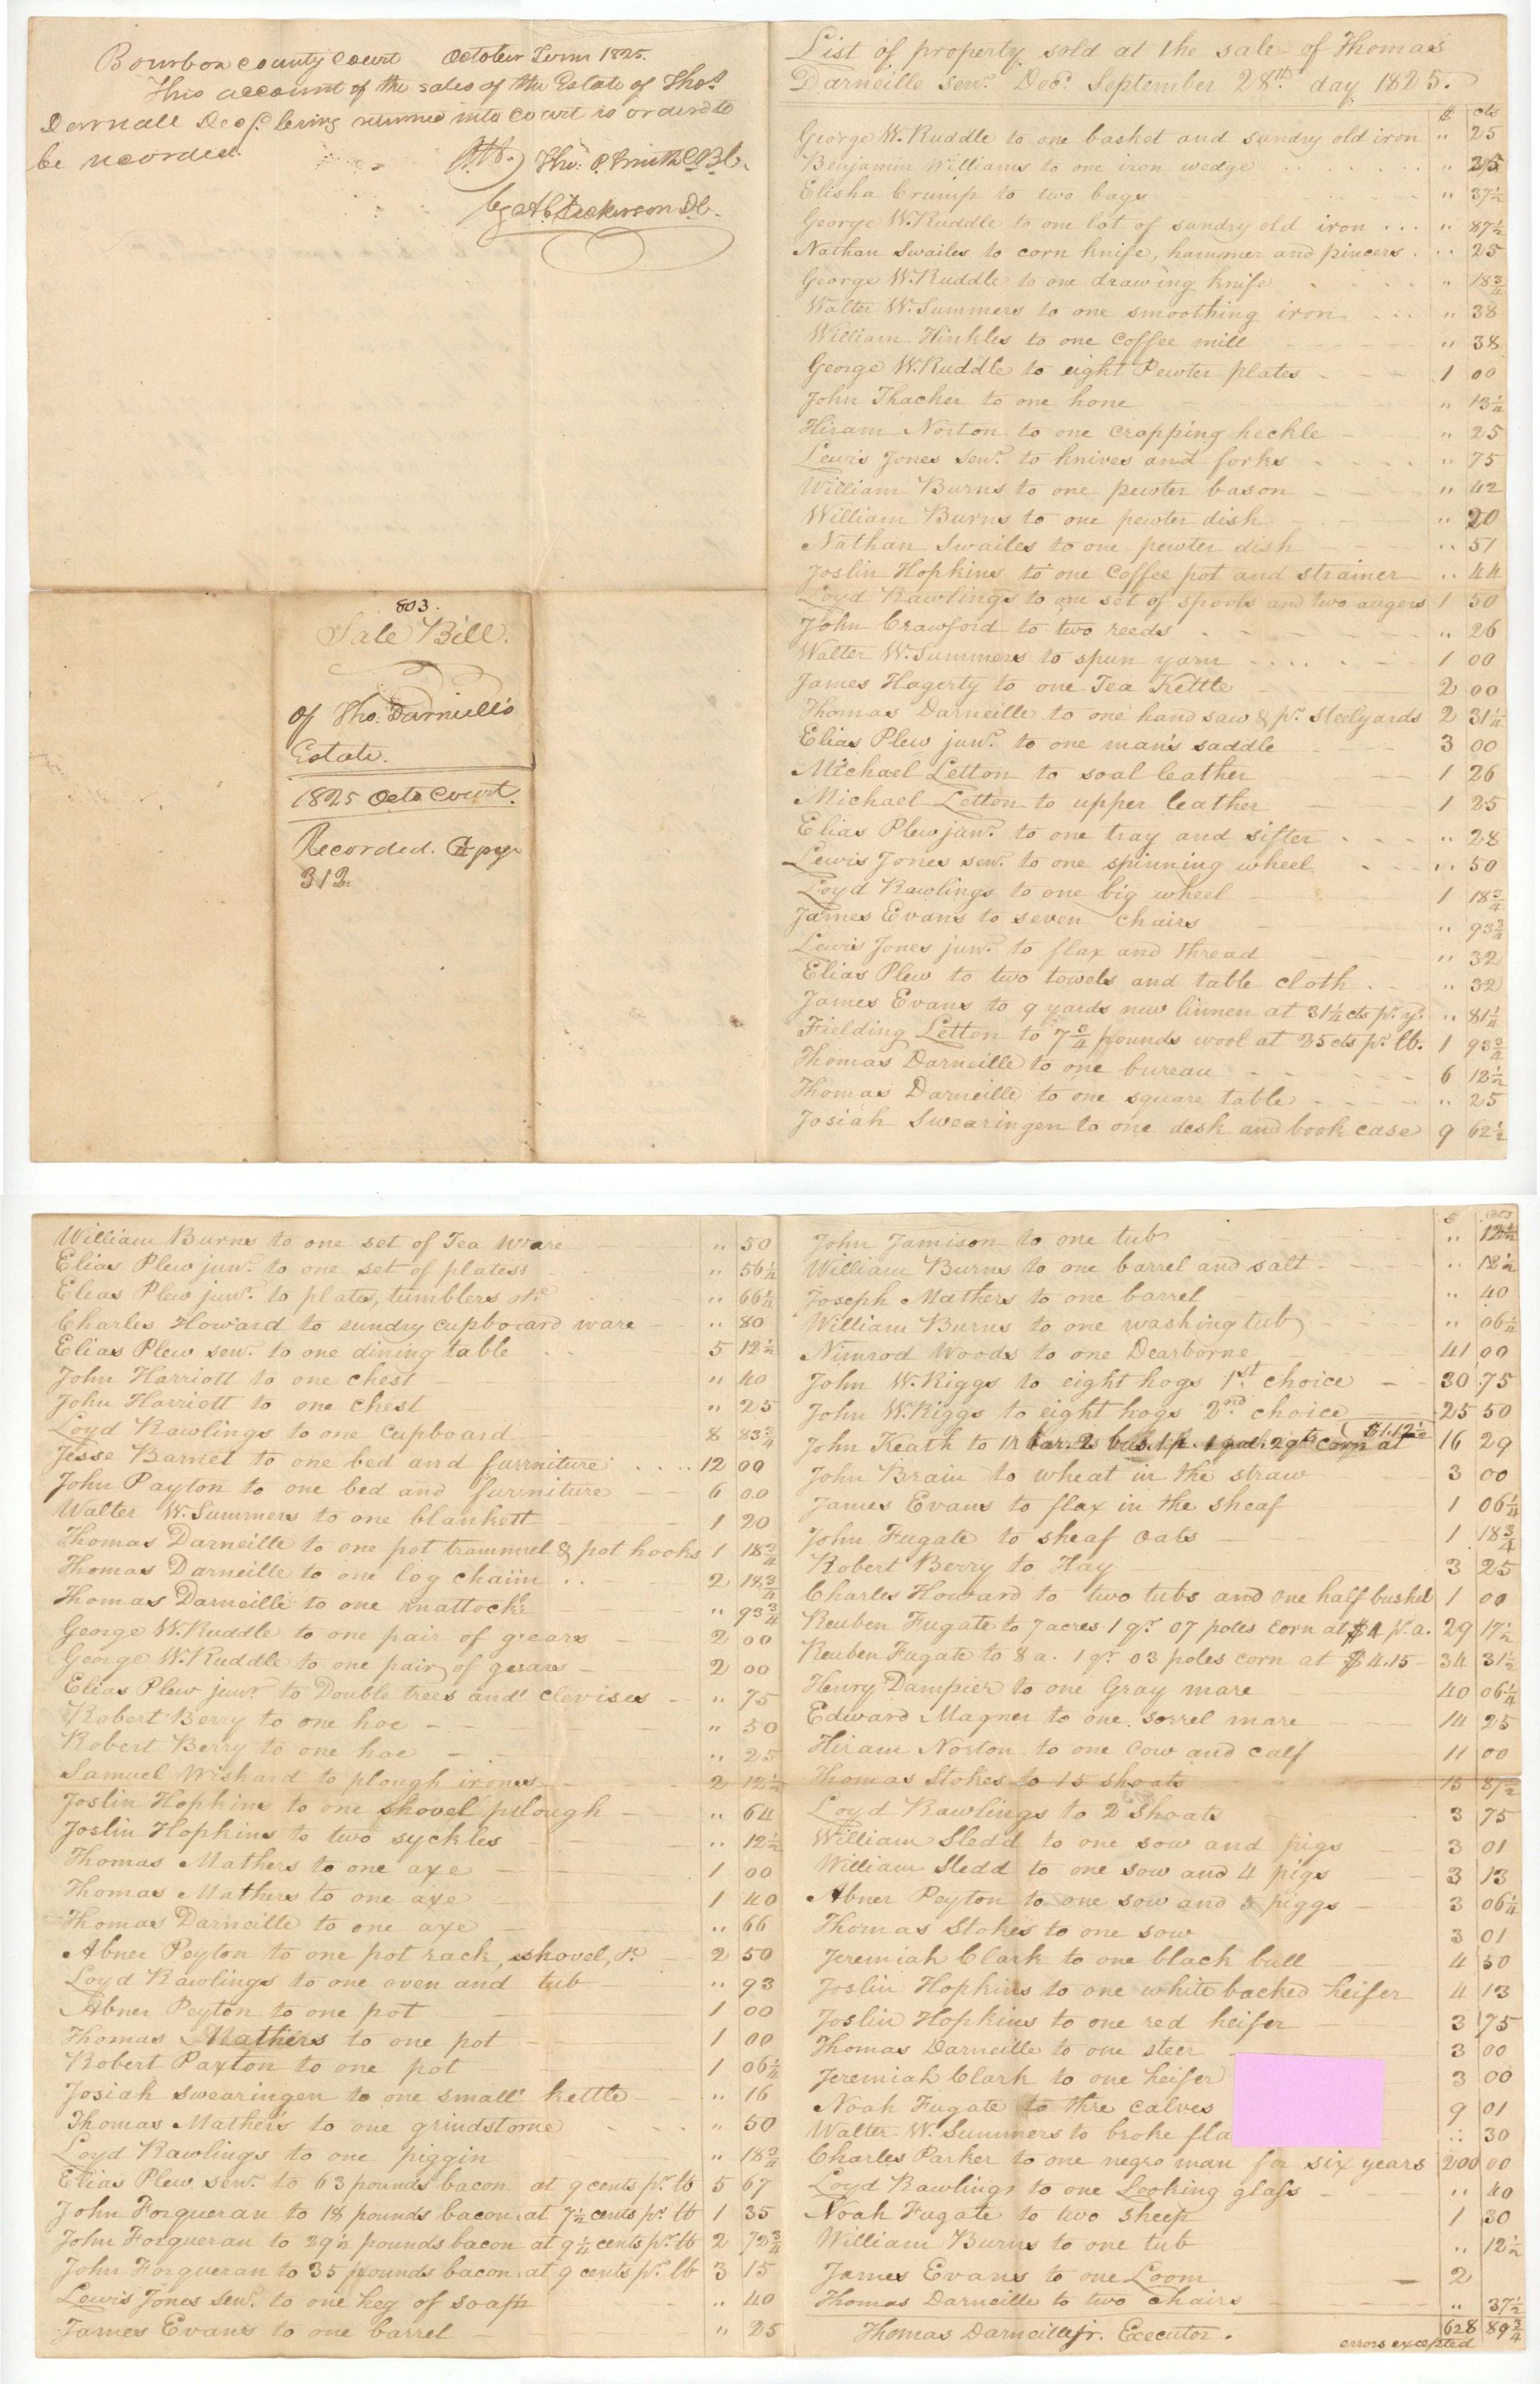 Bourbon county Court October Term 1825.
This account of the sales of the Estate of Thos.
Darnall Decd. being returned into Court is ordered to
be recorded.
Att. Thos. P. Smith C B C.
by A C Dickerson D C.
803.
Sale Bill.
Of Tho. Darnielle's
Estate.
1825 Octo Court.
Recorded. page
313
List of property sold at the sale of Thomas
Darneille senr. Decd. September 28th. day 1825.
$ cts
George W. Ruddle to one basket and sundry old iron " 25
Benjamin Williams to one iron wedge " 25
Elisha Crump to two bags " 37½
George W. Ruddle to one lot of sundry old iron " 87½
Nathan Swailes to corn knife, hammer and pincers " 25
George W. Ruddle to one drawing knife " 18¾
Walter W. Summers to one smoothing iron " 38
William Hinkles to one Coffee mill " 38
George W. Ruddle to eight Pewter plates 1 00
John Thacker to one hone " 13¼
Hiram Norton to one crapping heckle " 25
Lewis Jones senr. to knives and forks " 75
William Burns to one pewter bason " 42
William Burns to one pewter dish " 20
Nathan Swailes to one pewter dish " 51
Joslin Hopkins to one Coffee pot and strainer " 44
Loyd Rawlings to one set of spools and two augers 1 50
John Crawford to two reeds " 26
Walter W. Summers to spun yarn 1 00
James Hagerty to one Tea Kettle 2 00
Thomas Darneille to one hand saw & pr. steelyards 2 31¼
Elias Plew junr. to one man's saddle 3 00
Michael Letton to soal leather 1 26
Michael Letton to upper leather 1 25
Elias Plew junr. to one tray and sifter " 28
Lewis Jones senr. to one spinning wheel " 50
Loyd Rawlings to one big wheel 1 18¾
James Evans to seven chairs " 93¾
Lewis Jones junr. to flax and thread " 32
Elias Plew to two towels and table cloth " 32
James Evans to 9 yards new linnen at 31¼ cts pr. yd. " 81¼
Fielding Letton to 7¾ pounds wool at 25 cts pr. lb. 1 93¾
Thomas Darneille to one bureau 6 12½
Thomas Darneille to one square table " 25
Josiah Swearingen to one desk and book case 9 62½
William Burns to one set of Tea Ware " 50
Elias Plew junr. to one set of plates " 56½
Elias Plew junr. to plate, tumblers &c " 66¼
Charles Howard to sundry cupboard ware " 80
Elias Plew senr. to one dining table 5 12½
John Harriott to one chest " 40
John Harriott to one chest " 25
Loyd Rawlings to one Cupboard 8 83¾
Jesse Barnet to one bed and furniture 12 00
John Payton to one bed and furniture 6 00
Walter W. Summers to one blankett 1 20
Thomas Darneille to one pot trammel & pot hooks 1 18¾
Thomas Darneille to one log chain 2 18¾
Thomas Darneille to one mattock " 93¾
George W. Ruddle to one pair of grears 2 00
George W. Ruddle to one pair of gerars 2 00
Elias Plew junr. to Double trees and clevises " 75
Robert Berry to one hoe " 50
Robert Berry to one hoe " 25
Samuel Wishard to plough irons 2 12½
Joslin Hopkins to one shovel plough " 64
Joslin Hopkins to two syckles " 12½
Thomas Mathers to one axe 1 00
Thomas Mathers to one axe 1 40
Thomas Darneille to one axe " 66
Abner Peyton to one pot rack, shovel, &c. 2 50
Loyd Rawlings to one oven and tub " 93
Abner Peyton to one pot 1 00
Thomas Mathers to one pot 1 00
Robert Paxton to one pot 1 06¼
Josiah Swearingen to one small kettle " 16
Thomas Mathers to one grindstone " 50
Loyd Rawlings to one piggin " 18¾
Elias Plew senr. to 63 pounds bacon at 9 cents pr. lb 5 67
John Forqueran to 18 pounds bacon at 7½ cents pr. lb 1 35
John Forqueran to 29½ pounds bacon at 9¼ cents pr. lb 2 72¾
John Forqueran to 35 pounds bacon at 9 cents pr. lb 3 15
Lewis Jones senr. to one keg of soap " 40
James Evans to one barrel " 25
$ cts
John Jamison to one tub " 12½
William Burns to one barrel and salt " 12½
Joseph Mathers to one barrel " 40
William Burns to one washing tub " 06¼
Nimrod Woods to one Dearborne 41 00
John W. Riggs to eight hogs 1st. choice 30 75
John W. Riggs to eight hogs 2nd. choice 25 50
John Keath to 14 bar. 2 bus. 1 p. 1 gal. 2 qts corn at $1.12½ 16 29
John Brain to wheat in the straw 3 00
James Evans to flax in the sheaf 1 06¼
John Fugate to sheaf oats 1 18¾
Robert Berry to Hay 3 25
Charles Howard to two tubs and one half bushel 1 00
Reuben Fugate to 7 acres 1 qr. 07 poles corn at $4 pr. a. 29 17½
Reuben Fugate to 8 a. 1 qr. 03 poles corn at $4.15 34 31½
Henry Dampier to one Gray mare 40 06¼
Edward Magner to one sorrel mare 14 25
Hiram Norton to one Cow and calf 11 00
Thomas Stokes to 15 shoats 15 87½
Loyd Rawlings to 2 shoats 3 75
William Sledd to one sow and pigs 3 01
William Sledd to one sow and 4 pigs 3 13
Abner Peyton to one sow and 5 piggs 3 06¼
Thomas Stokes to one sow 3 01
Jeremiah Clark to one black bull 4 50
Joslin Hopkins to one white backed heifer 4 13
Joslin Hopkins to one red heifer 3 75
Thomas Darneille to one steer 3 00
Jeremiah Clark to one heifer 3 00
Noah Fugate to thre calves 9 01
Walter W. Summers to broke fla " 30
Charles Parker to one negro man for six years 200 00
Loyd Rawlings to one Looking glass " 40
Noah Fugate to two sheep 1 30
William Burns to one tub " 12½
James Evans to one Loom 2
Thomas Darneille to two chairs " 37½
Thomas Darneille jr. Executor. 628 89¾
errors excepted